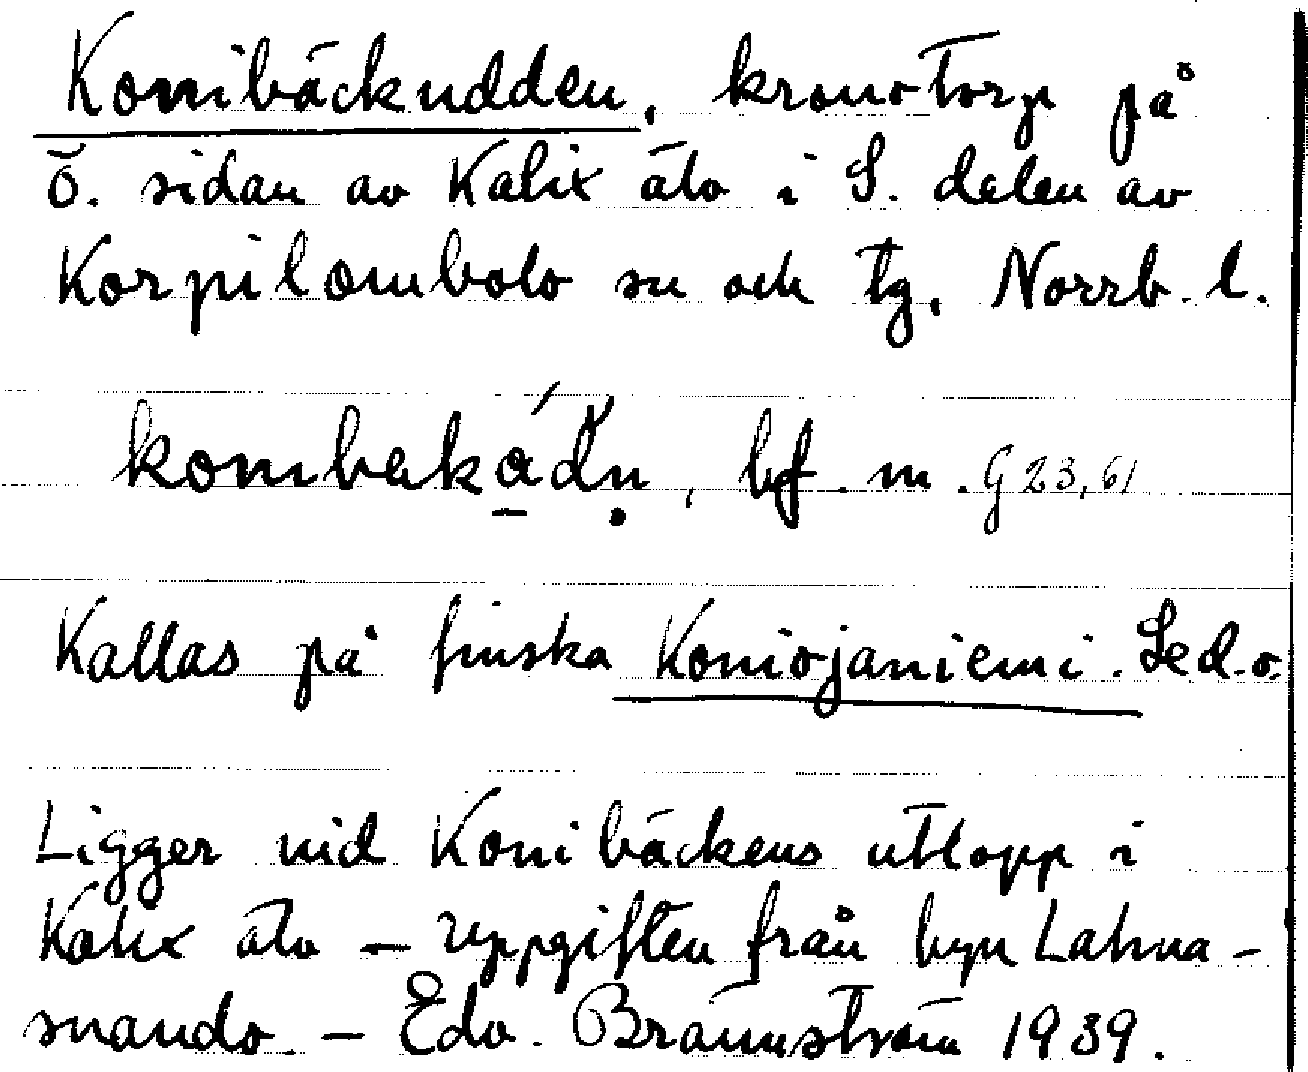 Konibäckudden, kronotorp på
ö. sidan av Kalix älv i S. delen av
Korpilombolo sn och tg, Norrb. l.
konibekádn, bf. m. G 23, 61
Kallas på finska Koniojaniemi. Se d.o.
Ligger vid Konibäckens utlopp i
Kalix älv — uppgiften från byn Lahna-
suando. — Edv. Brännström 1939.